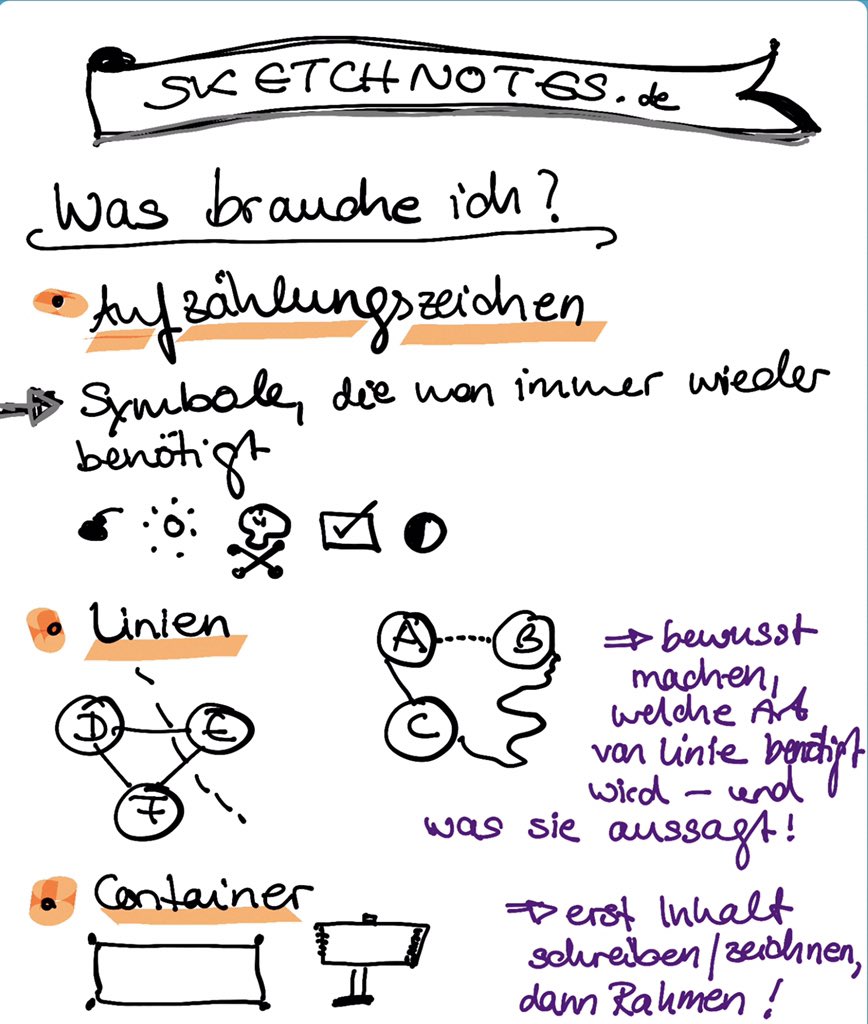 SKETCHNOTES.de
Was brauche ich?
Aufzählungszeichen
Symbole, die man immer wieder
benötigt
Linien
A B
C
D E
F
⇒ bewusst
machen,
welche Art
von Linie benötigt
wird – und
was sie aussagt!
Container
⇒ erst Inhalt
schreiben/zeichnen,
dann Rahmen!